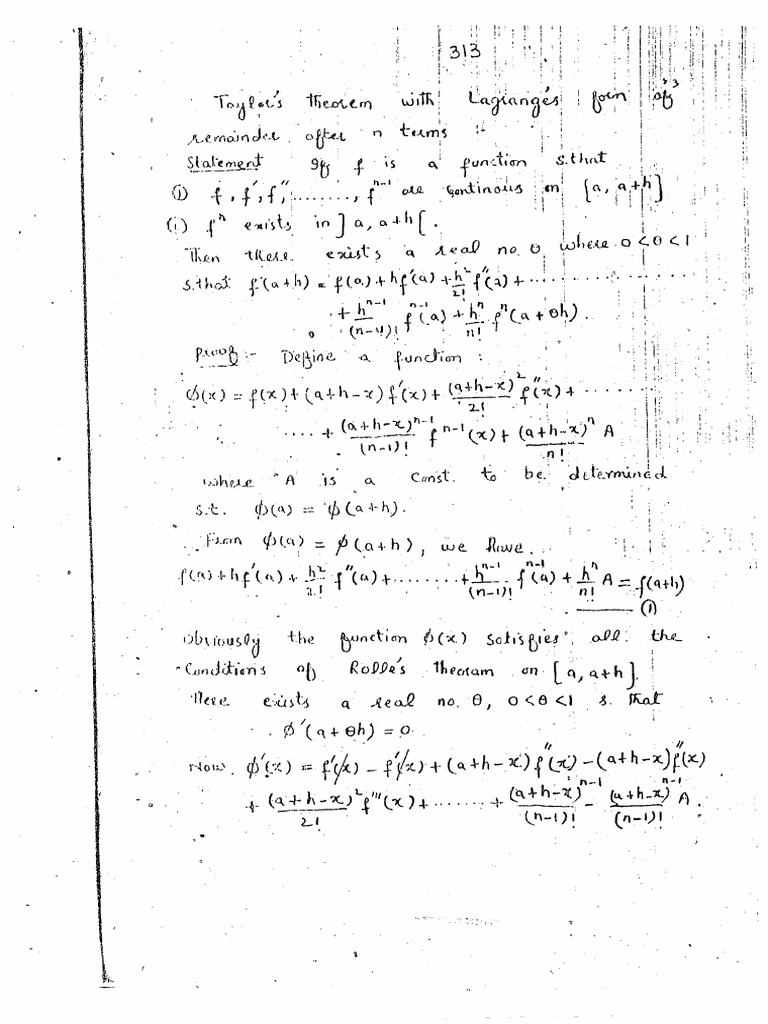 313
Taylor's theorem with Lagrange's form of
remainder after n terms :-
Statement If f is a function s.that
(i) f, f', f'', ......., f^{n-1} are continous on [a, a+h]
(i) f^n exists in ]a, a+h[.
Then there exists a real no. θ, where 0<θ<1
s.that f(a+h) = f(a) + hf'(a) + \frac{h^2}{2!} f''(a) + ..............
+ \frac{h^{n-1}}{(n-1)!} f^{n-1}(a) + \frac{h^n}{n!} f^n(a+θh).
Proof:- Define a function :
φ(x) = f(x) + (a+h-x) f'(x) + \frac{(a+h-x)^2}{2!} f''(x) + ........
.... + \frac{(a+h-x)^{n-1}}{(n-1)!} f^{n-1}(x) + \frac{(a+h-x)^n}{n!} A
where A is a const. to be determined
s.t. φ(a) = φ(a+h).
From φ(a) = φ(a+h), we have.
f(a) + hf'(a) + \frac{h^2}{2!} f''(a) + ........ + \frac{h^{n-1}}{(n-1)!} f^{n-1}(a) + \frac{h^n}{n!} A = f(a+h)
——— (1)
Obviously the function φ(x) satisfies all the
Conditions of Rolle's theoram on [a, a+h].
Here exists a real no. θ, 0<θ<1 s. that
φ'(a+θh) = 0
Now φ'(x) = f'(x) - f'(x) + (a+h-x) f''(x) - (a+h-x) f''(x)
+ \frac{(a+h-x)^2}{2!} f'''(x) + ....... + \frac{(a+h-x)^{n-1}}{(n-1)!} - \frac{(a+h-x)^{n-1}}{(n-1)!} A.